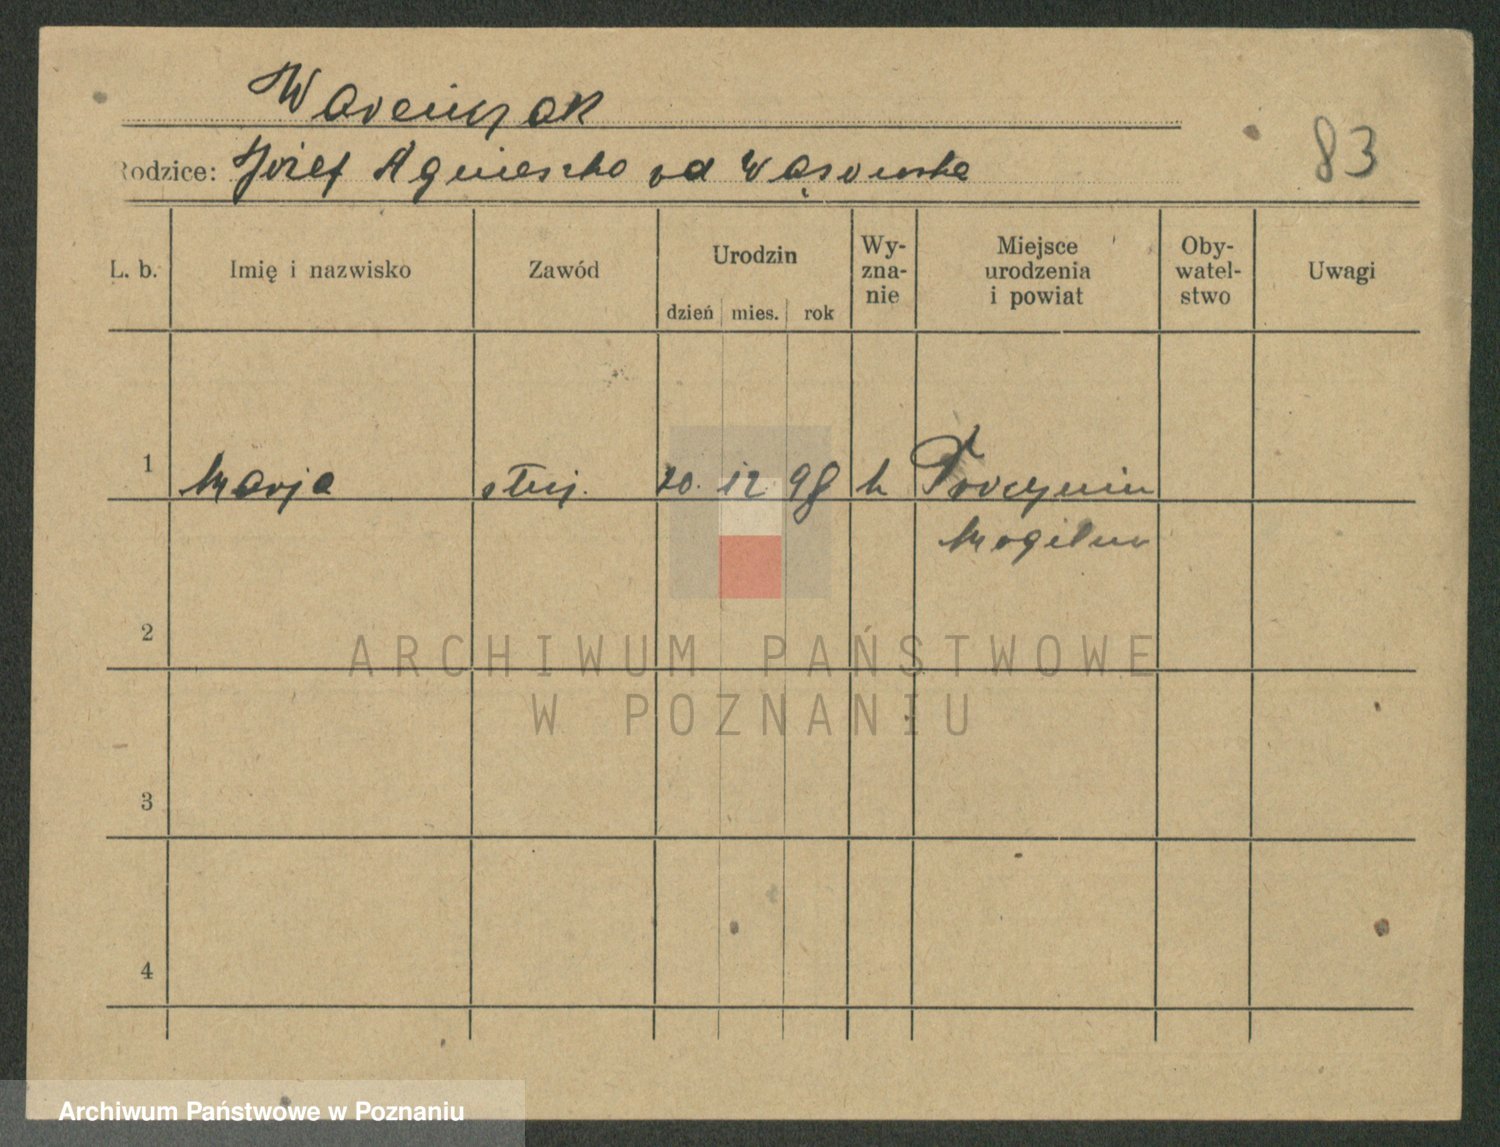 Wawrzyniak
83
Rodzice: Józef Agnieszka od Wąsowska
L. b.
Imię i nazwisko
Zawód
Urodzin
dzień mies. rok
Wy-
zna-
nie
Miejsce
urodzenia
i powiat
Oby-
watel-
stwo
Uwagi
1 Marja służ. 20. 12 98 k
Mogilno
2
3
4
ARCHIWUM PAŃSTWOWE
W POZNANIU
Archiwum Państwowe w Poznaniu